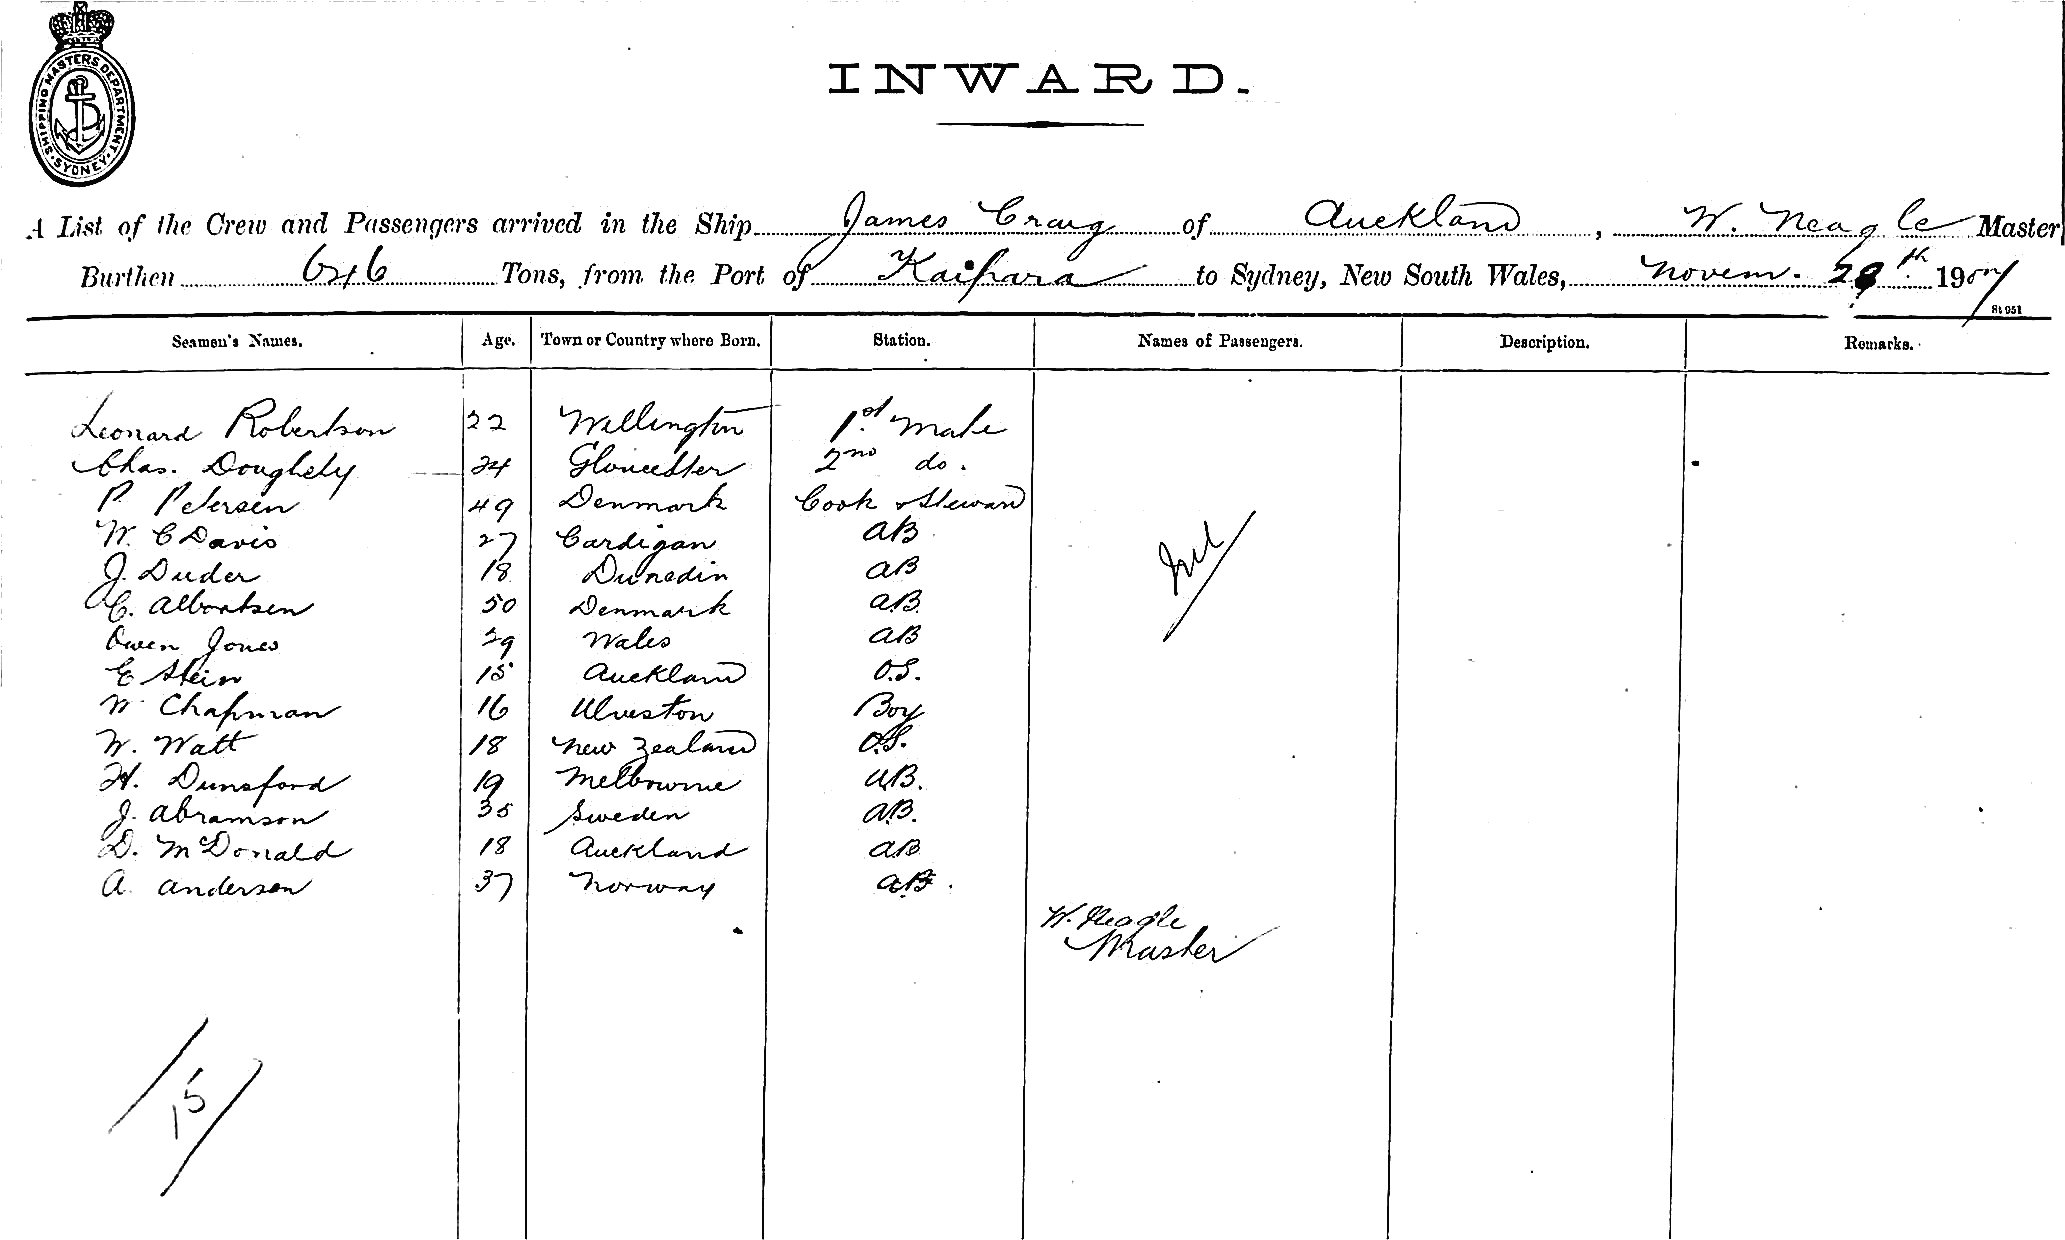 SHIPPING MASTERS DEPARTMENT · SYDNEY ·
INWARD.
A List of the Crew and Passengers arrived in the Ship James Craig of Auckland, W. Neagle Master
Burthen 646 Tons, from the Port of Kaipara to Sydney, New South Wales, Novem. 28th 1907
St 951
Seamen's Names. Age. Town or Country where Born. Station. Names of Passengers. Description. Remarks.
Leonard Robertson 22 Wellington 1st Mate
Chas. Doughety 24 Gloucester 2nd do.
P. Petersen 49 Denmark Cook & Steward
W. C Davis 27 Cardigan AB
Nil
J. Duder 18 Dunedin AB
C. Albertsen 50 Denmark A.B.
Owen Jones 29 Wales AB
E Stein 15 Auckland O.S.
W Chapman 16 Ulveston Boy
W. Watt 18 New Zealand O.S.
H. Dunsford 19 Melbourne AB.
J. Abramson 35 Sweden A.B.
D. McDonald 18 Auckland AB
A. Anderson 37 Norway AB.
W. Neagle
Master
15